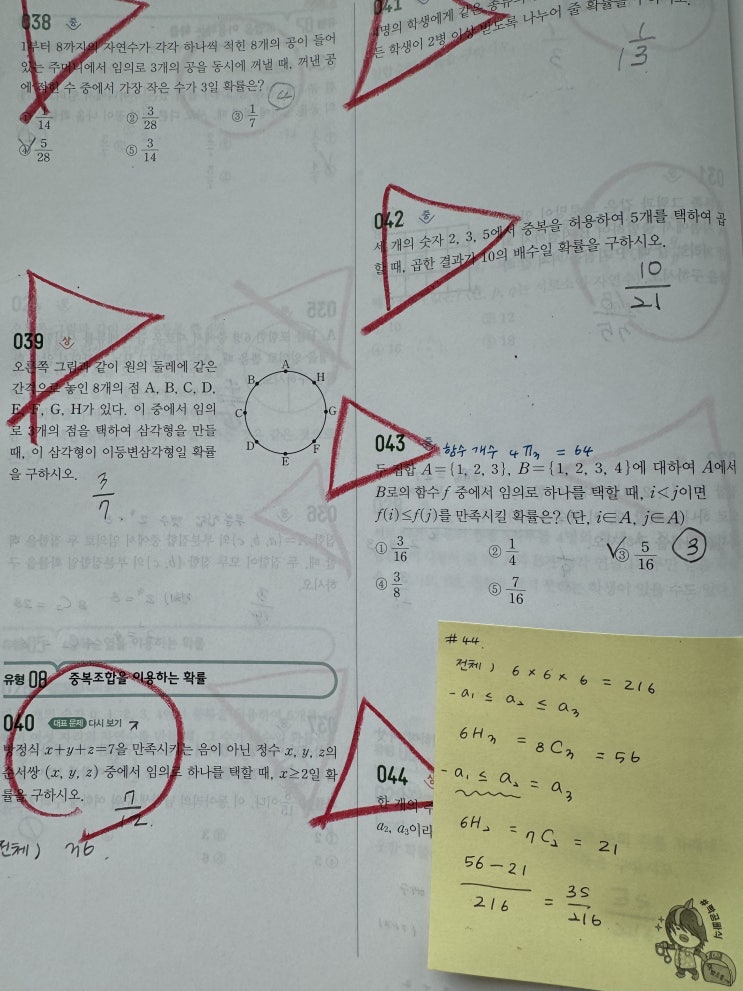 038 중
1부터 8까지의 자연수가 각각 하나씩 적힌 8개의 공이 들어
있는 주머니에서 임의로 3개의 공을 동시에 꺼낼 때, 꺼낸 공
에 적힌 수 중에서 가장 작은 수가 3일 확률은? ④
① 1/14 ② 3/28 ③ 1/7
④ 5/28 ⑤ 3/14
039 상
오른쪽 그림과 같이 원의 둘레에 같은
간격으로 놓인 8개의 점 A, B, C, D,
E, F, G, H가 있다. 이 중에서 임의
로 3개의 점을 택하여 삼각형을 만들
때, 이 삼각형이 이등변삼각형일 확률
을 구하시오.
3/7
A
B H
C G
D F
E
유형 08 중복조합을 이용하는 확률
040 대표 문제 다시 보기
방정식 x+y+z=7을 만족시키는 음이 아닌 정수 x, y, z의
순서쌍 (x, y, z) 중에서 임의로 하나를 택할 때, x≥2일 확
률을 구하시오.
7/12
전체) 36.
041
명의 학생에게 같은 종류의
든 학생이 2병 이상 받도록 나누어 줄 확률을 구하시오.
1/13
042 중
세 개의 숫자 2, 3, 5에서 중복을 허용하여 5개를 택하여 곱
할 때, 곱한 결과가 10의 배수일 확률을 구하시오.
10/21
043 중 함수 개수 4π3 = 64
두 집합 A={1, 2, 3}, B={1, 2, 3, 4}에 대하여 A에서
B로의 함수 f 중에서 임의로 하나를 택할 때, i<j이면
f(i)≤f(j)를 만족시킬 확률은? (단, i∈A, j∈A)
① 3/16 ② 1/4 ③ 5/16 ③
④ 3/8 ⑤ 7/16
044 상
한 개의 주
a₂, a₃이라
#44.
전체) 6 × 6 × 6 = 216
- a₁ ≤ a₂ ≤ a₃
6H3 = 8C3 = 56
- a₁ ≤ a₂ = a₃
6H2 = 7C2 = 21
56-21/216 = 35/216